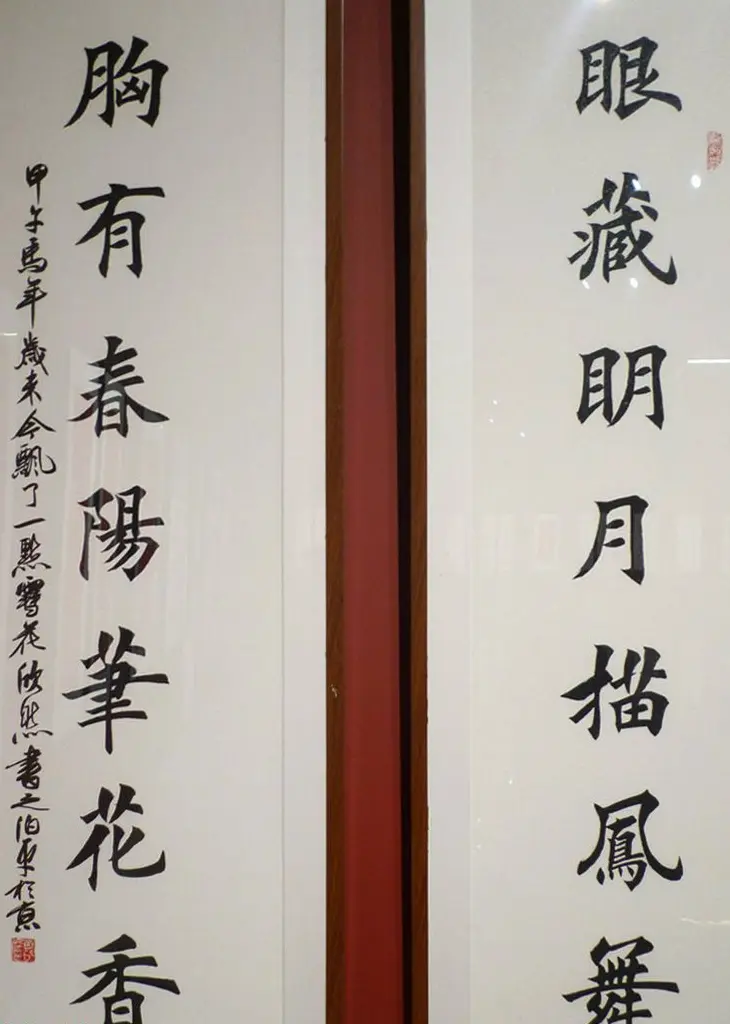 眼藏明月描鳳舞
胸有春陽筆花香
甲午馬年歲末今飄了一點雪花欣然書之泊平於京